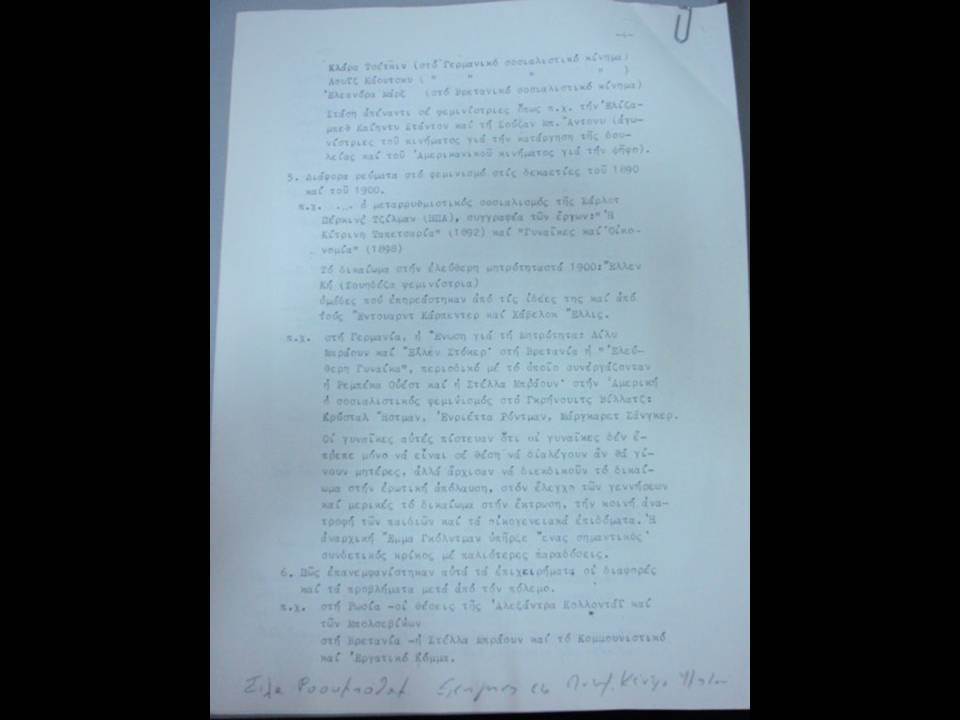 -4-
Κλάρα Τσέτκιν (στό Γερμανικό σοσιαλιστικό κίνημα)
Λουΐζ Κάουτσκυ ( " " " " )
Ἐλεανόρα Μάρξ (στό Βρετανικό σοσιαλιστικό κίνημα)
Στάση ἀπέναντι σέ φεμινίστριες ὅπως π.χ. τήν Ἐλίζα-
μπεθ Καίηντυ Στάντον καί τή Σούζαν Μπ. Ἄντονυ (ἀγω-
νίστριες τοῦ κινήματος γιά τήν κατάργηση τῆς δου-
λείας καί τοῦ Ἀμερικανικοῦ κινήματος γιά τήν ψῆφο).
5. Διάφορα ρεύματα στό φεμινισμό στίς δεκαετίες τοῦ 1890
καί τοῦ 1900.
π.χ. .... ὁ μεταρρυθμιστικός σοσιαλισμός τῆς Σάρλοτ
Πέρκινς Τζίλμαν (ΗΠΑ), συγγραφέα τῶν ἔργων: "Ἡ
Κίτρινη Ταπετσαρία" (1892) καί "Γυναῖκες καί Οἰκο-
νομία" (1898)
Τό δικαίωμα στήν ἐλεύθερη μητρότητα στά 1900: Ἔλλεν
Κέϋ (Σουηδέζα φεμινίστρια)
ὁμάδες πού ἐπηρεάστηκαν ἀπό τίς ἰδέες της καί ἀπό
τούς Ἔντουαρντ Κάρπεντερ καί Χάβελοκ Ἔλλις.
π.χ. στή Γερμανία, ἡ Ἕνωση γιά τή Μητρότητα: Λίλυ
Μπράουν καί Ἕλεν Στόκερ· στή Βρετανία ἡ "Ἐλεύ-
θερη Γυναίκα", περιοδικό μέ τό ὁποῖο συνεργάζονταν
ἡ Ρεμπέκα Οὐέστ καί ἡ Στέλλα Μπράουν· στήν Ἀμερική
ὁ σοσιαλιστικός φεμινισμός στό Γκρήνουιτς Βίλλατζ:
Κρύσταλ Ἦστμαν, Ἑνριέττα Ρόντμαν, Μάργκαρετ Σάνγκερ.
Οἱ γυναῖκες αὐτές πίστευαν ὅτι οἱ γυναῖκες δέν ἔ-
πρεπε μόνο νά εἶναι σέ θέση νά διαλέγουν ἄν θά γί-
νουν μητέρες, ἀλλά ἄρχισαν νά διεκδικοῦν τό δικαί-
ωμα στήν ἐρωτική ἀπόλαυση, στόν ἔλεγχο τῶν γεννήσεων
καί μερικές τό δικαίωμα στήν ἔκτρωση, τήν κοινή ἀνα-
τροφή τῶν παιδιῶν καί τά οἰκογενειακά ἐπιδόματα. Ἡ
ἀναρχική Ἔμμα Γκόλντμαν ὑπῆρξε ἕνας σημαντικός
συνδετικός κρίκος μέ παλιότερες παραδόσεις.
6. Πῶς ἐπανεμφανίστηκαν αὐτά τά ἐπιχειρήματα, οἱ διαφορές
καί τά προβλήματα μετά ἀπό τόν πόλεμο.
π.χ. στή Ρωσία -οἱ θέσεις τῆς Ἀλεξάντρα Κολλοντάϊ καί
τῶν Μπολσεβίκων
στή Βρετανία -ἡ Στέλλα Μπράουν καί τό Κομμουνιστικό
καί Ἐργατικό Κόμμα.
Σίλα Ροουμπόθαμ